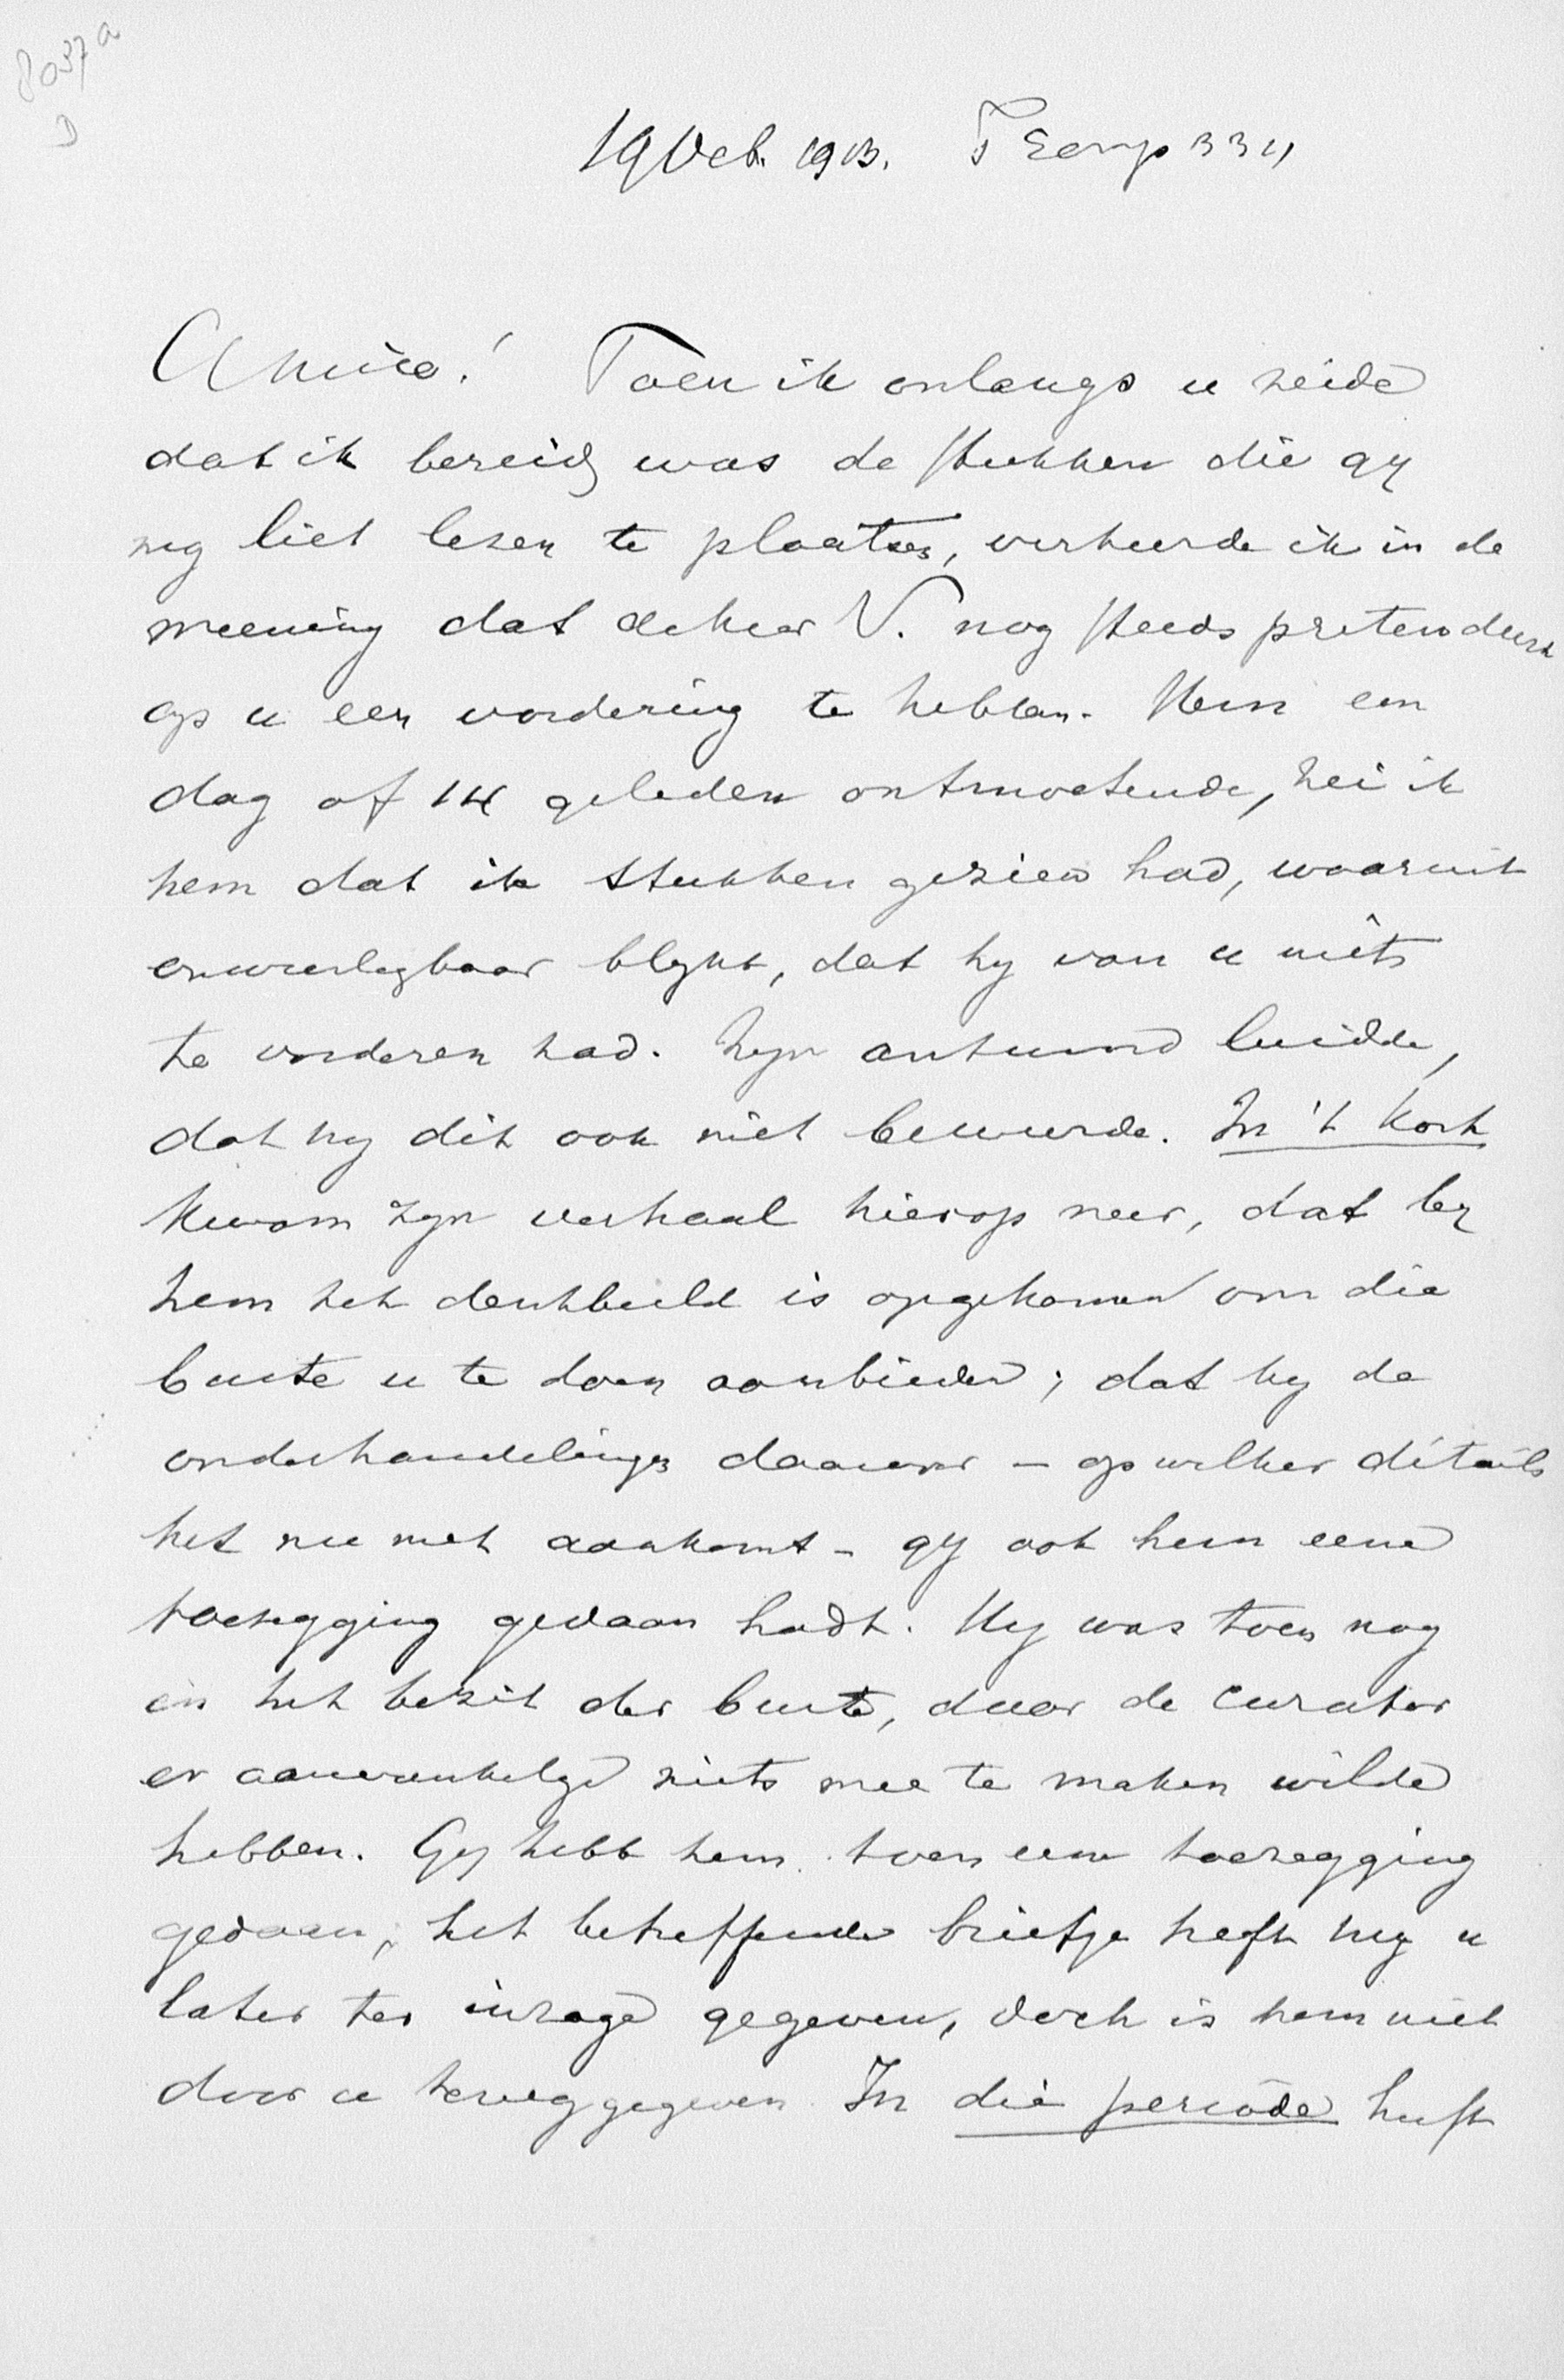 8037a
D
19 Oct. 1913.
Amice! Toen ik onlangs u zeide
dat ik bereid was de stukken die gij
mij liet lezen te plaatsen, verkeerde ik in de
meening dat de heer V. nog steeds pretendeerde
op u een vordering te hebben. Hem een
dag of 14 geleden ontmoetende, zei ik
hem dat ik stukken gezien had, waaruit
onweerlegbaar blijkt, dat hij van u niets
te vorderen had. Zijn antwoord luidde,
dat hij dit ook niet beweerde. In 't kort
kwam zijn verhaal hierop neer, dat bij
hem het denkbeeld is opgekomen om die
buste u te doen aanbieden; dat hij de
onderhandelingen daarover – op welker détails
het nu niet aankomt – gij ook hem eene
toezegging gedaan hadt. Hij was toen nog
in het bezit der buste, daar de curator
er aanvankelijk niets mee te maken wilde
hebben. Gij hebt hem toen eene toezegging
gedaan; het betreffende briefje heeft hij u
later ter inzage gegeven, doch is hem niet
door u teruggegeven. In die periode heeft